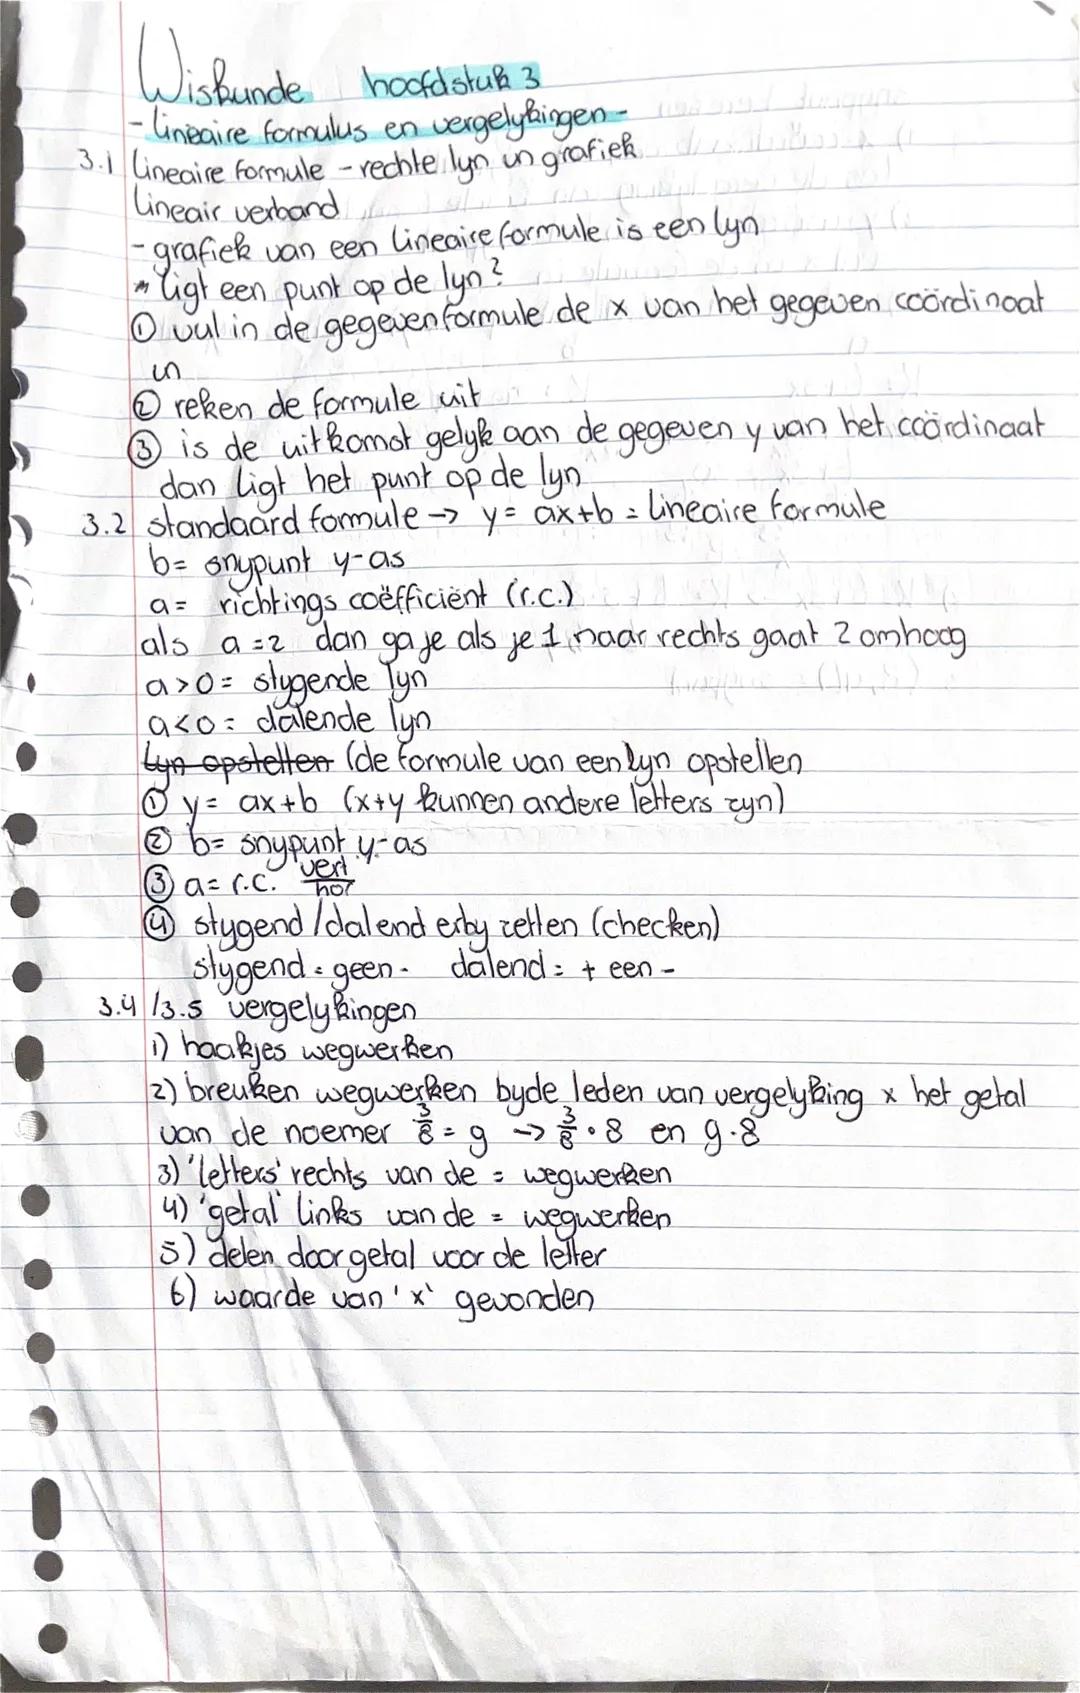 Wiskunde hoofdstuk 3
- lineaire formulus en vergelykingen -
3.1 lineaire formule - rechte lyn in grafiek
lineair verband
- grafiek van een lineaire formule is een lyn
ligt een punt op de lyn?
① vul in de gegeven formule de x van het gegeven coördinaat
in
② reken de formule uit
③ is de uitkomst gelyk aan de gegeven y van het coördinaat
dan ligt het punt op de lyn
3.2 standaard formule → y = ax+b = lineaire formule
b = snypunt y-as
a = richtings coëfficiënt (r.c.)
als a = 2 dan ga je als je 1 naar rechts gaat 2 omhoog
a > 0 = stygende lyn
a < 0 = dalende lyn
Lyn opstellen (de formule van een lyn opstellen
① y = ax+b (x+y kunnen andere letters zyn)
② b = snypunt y-as
③ a = r.c. vert/hor
④ stygend / dalend erby zetten (checken)
stygend = geen - dalend = + een -
3.4 / 3.5 vergelykingen
1) haakjes wegwerken
2) breuken wegwerken byde leden van vergelyking x het getal
van de noemer 3/8 = g → 3/8 · 8 en g·8
3) 'letters' rechts van de = wegwerken
4) 'getal' links van de = wegwerken
5) delen door getal voor de letter
6) waarde van 'x' gevonden